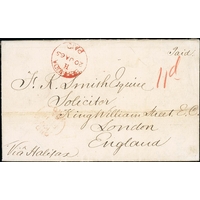 Paid.
11d
F. K. Smith Esquire
Solicitor
King William Street E.C.
London
England
Via Halifax